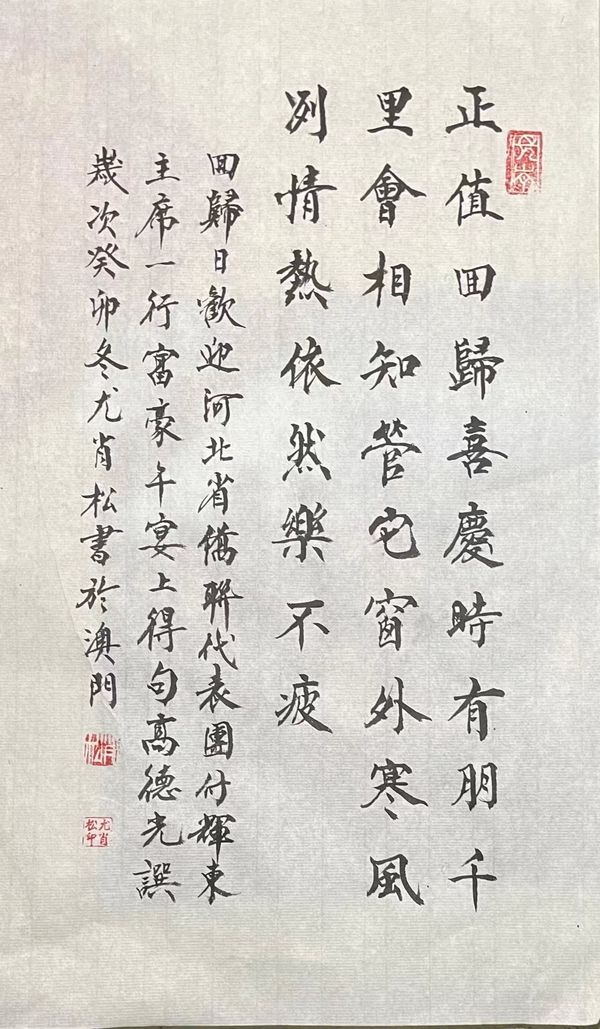 正值回歸喜慶時有朋千
里會相知管它窗外寒風
冽情熱依然樂不疲
回歸日歡迎河北省僑聯代表團付輝東
主席一行富豪午宴上得句高德光譔
歲次癸卯冬尤肖松書於澳門
尤肖
松印